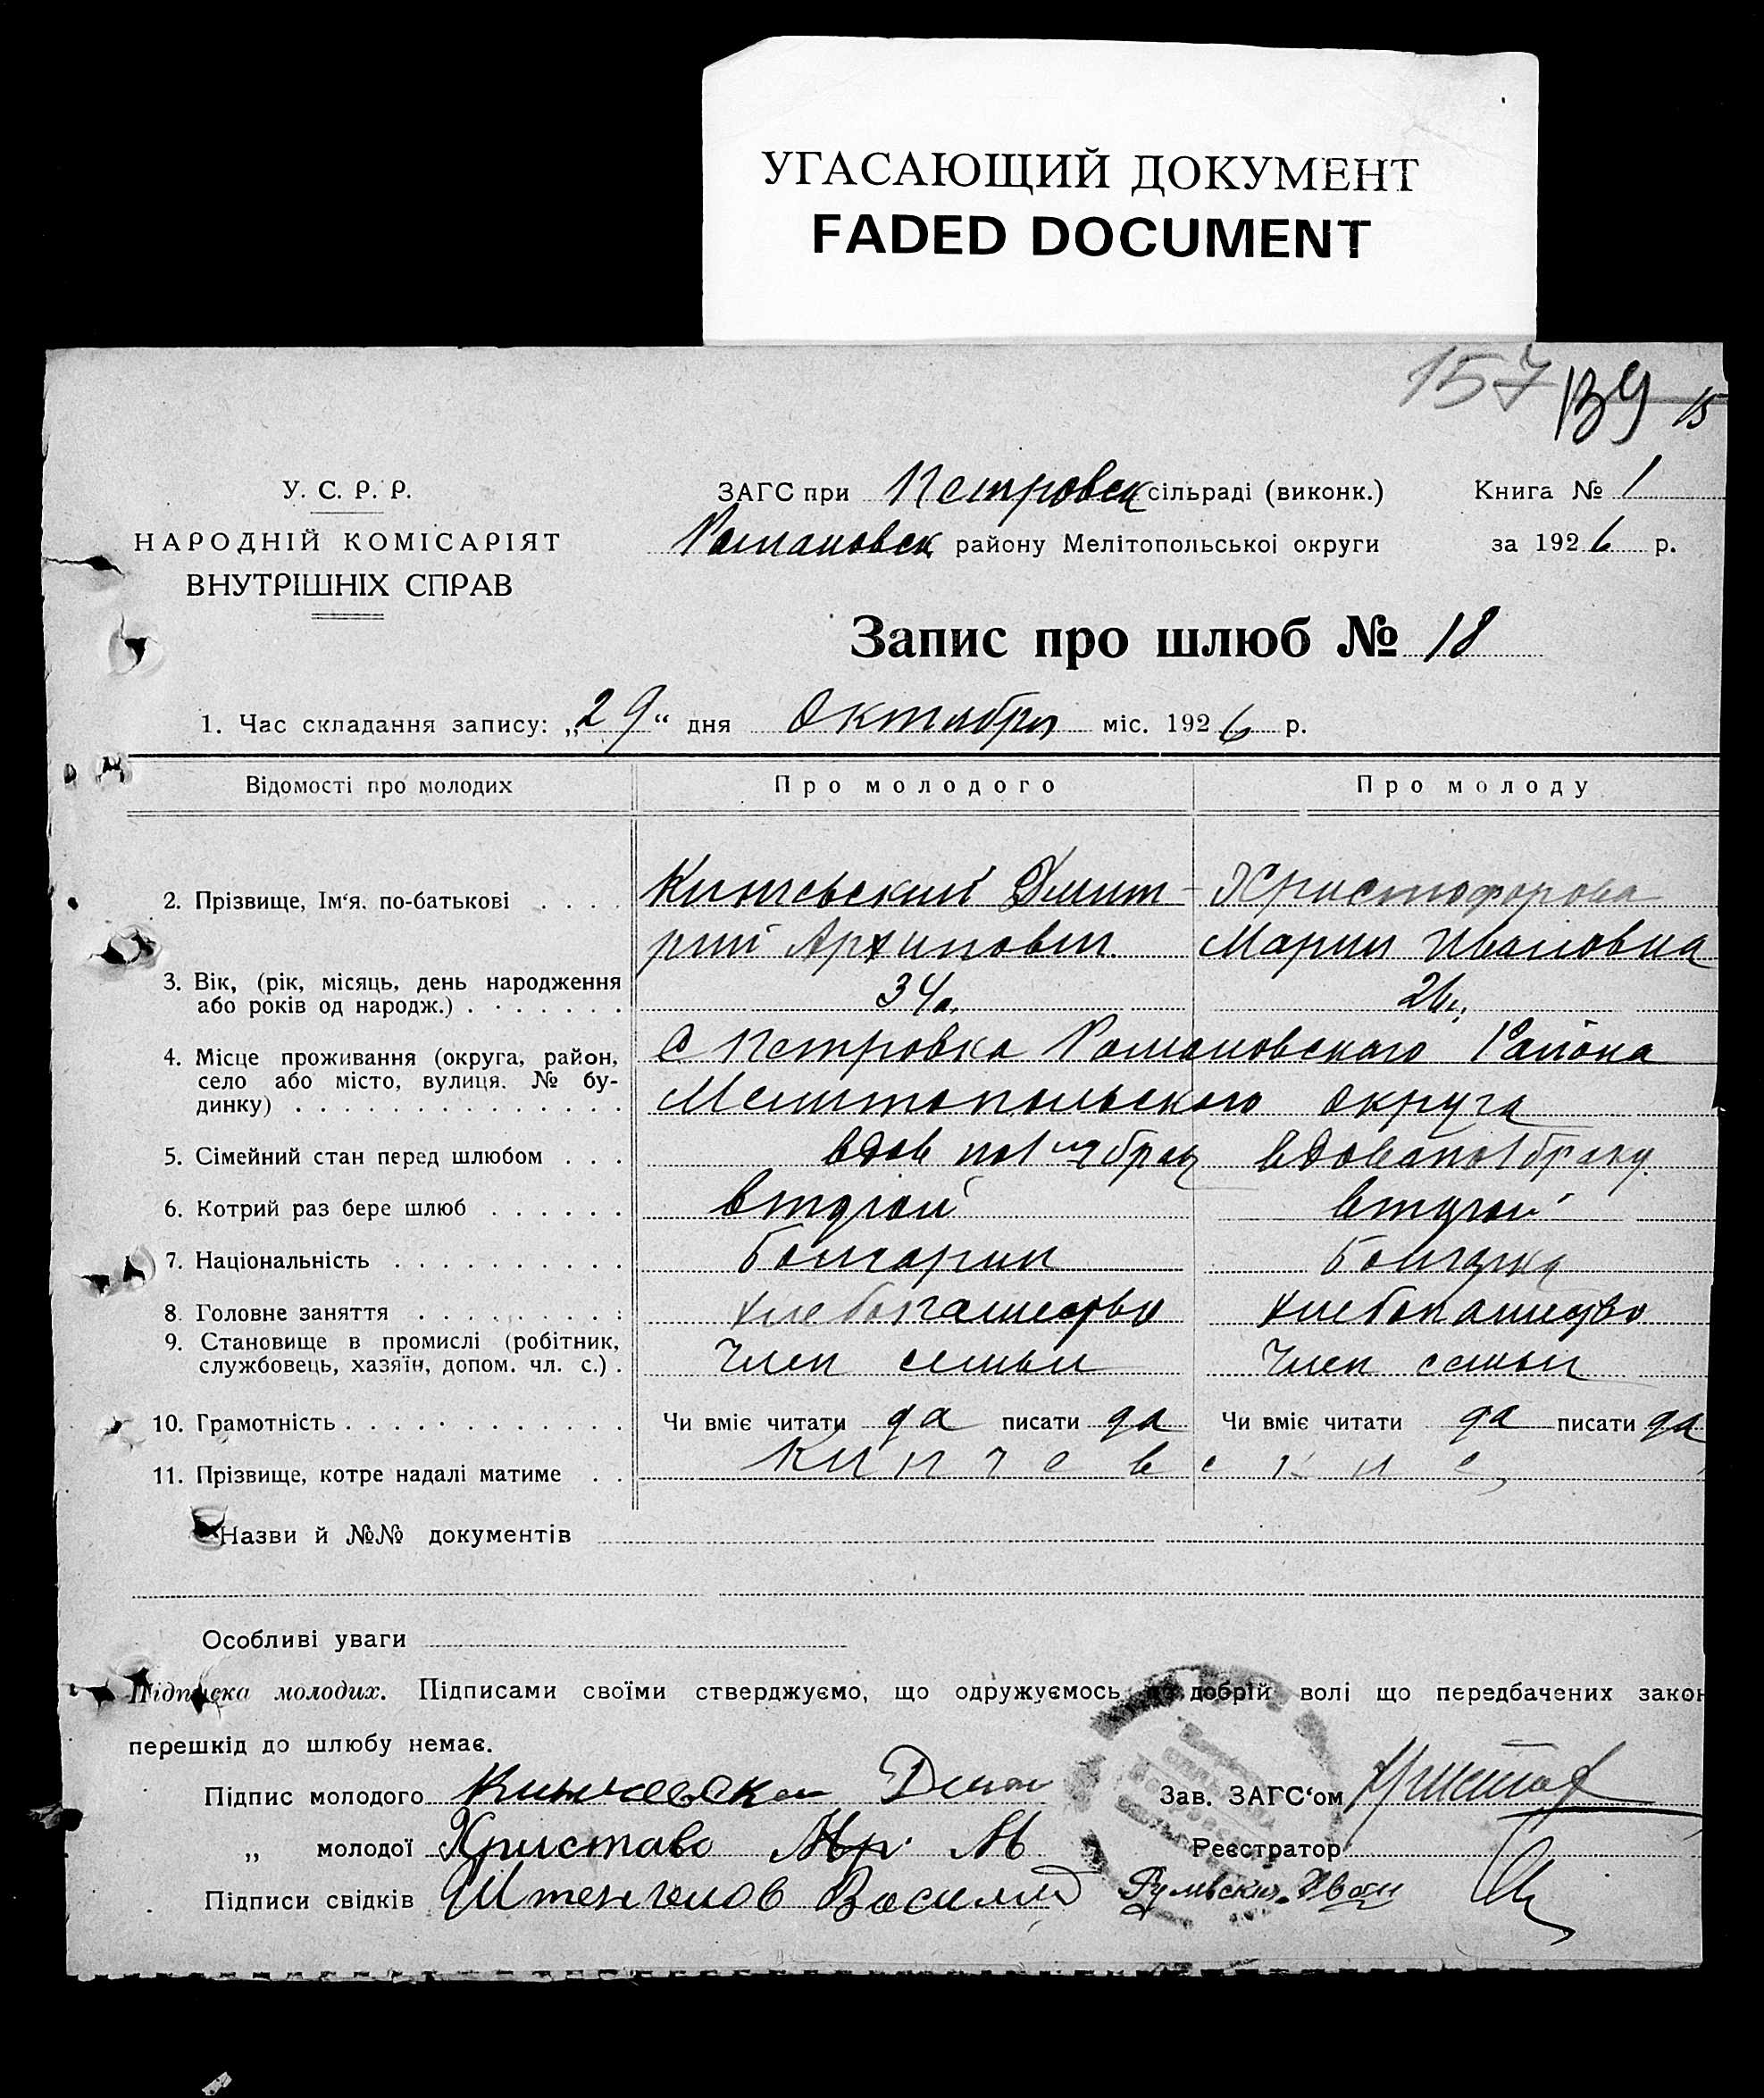 УГАСАЮЩИЙ ДОКУМЕНТ
FADED DOCUMENT
157 139 15
У. С. Р. Р.
НАРОДНІЙ КОМІСАРІЯТ
ВНУТРІШНІХ СПРАВ
ЗАГС при Петровск сільраді (виконк.) Книга № 1
Романовск району Мелітопольської округи за 1926 р.
Запис про шлюб № 18
1. Час складання запису: „29“ дня Октября міс. 1926 р.
Відомості про молодих Про молодого Про молоду
2. Прізвище, Ім‘я. по-батькові Дмит- Христофорова
рий Архипович Мария Ивановна
3. Вік, (рік, місяць, день народження
або років од народж.) 34
4. Місце проживання (округа, район, с Петровка Романовского Района
село або місто, вулиця. № бу-
динку) Мелитопольского округа
5. Сімейний стан перед шлюбом вдов по 1 брак вдова по 1 браку
6. Котрий раз бере шлюб второй второй
7. Національність болгарин болгарка
8. Головне заняття хлебопашество хлебопашество
9. Становище в промислі (робітник,
службовець, хазяїн, допом. чл. с.) член семьи член семьи
10. Грамотність Чи вміє читати да писати да Чи вміє читати да писати да
11. Прізвище, котре надалі матиме
Назви й №№ документів
Особливі уваги
Підписка молодих. Підписами своїми стверджуємо, що одружуємось по добрій волі що передбачених закон
перешкід до шлюбу немає.
Підпис молодого Зав. ЗАГС‘ом
„ молодої Христово Реєстратор
Підписи свідків Василий Иван